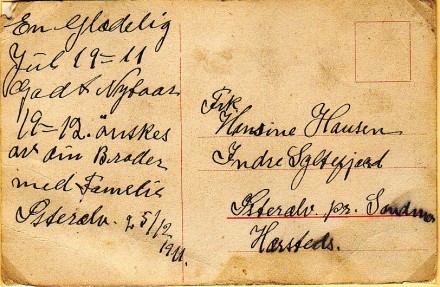 En Glædelig
Jul 19=11
Godt Nytaar
19=12. önskes
av din Broder
med Familie
Østerelv. 25/12
1911.
Frk.
Hansine Hansen
Indre Syltefjord
Østerelv. pr.